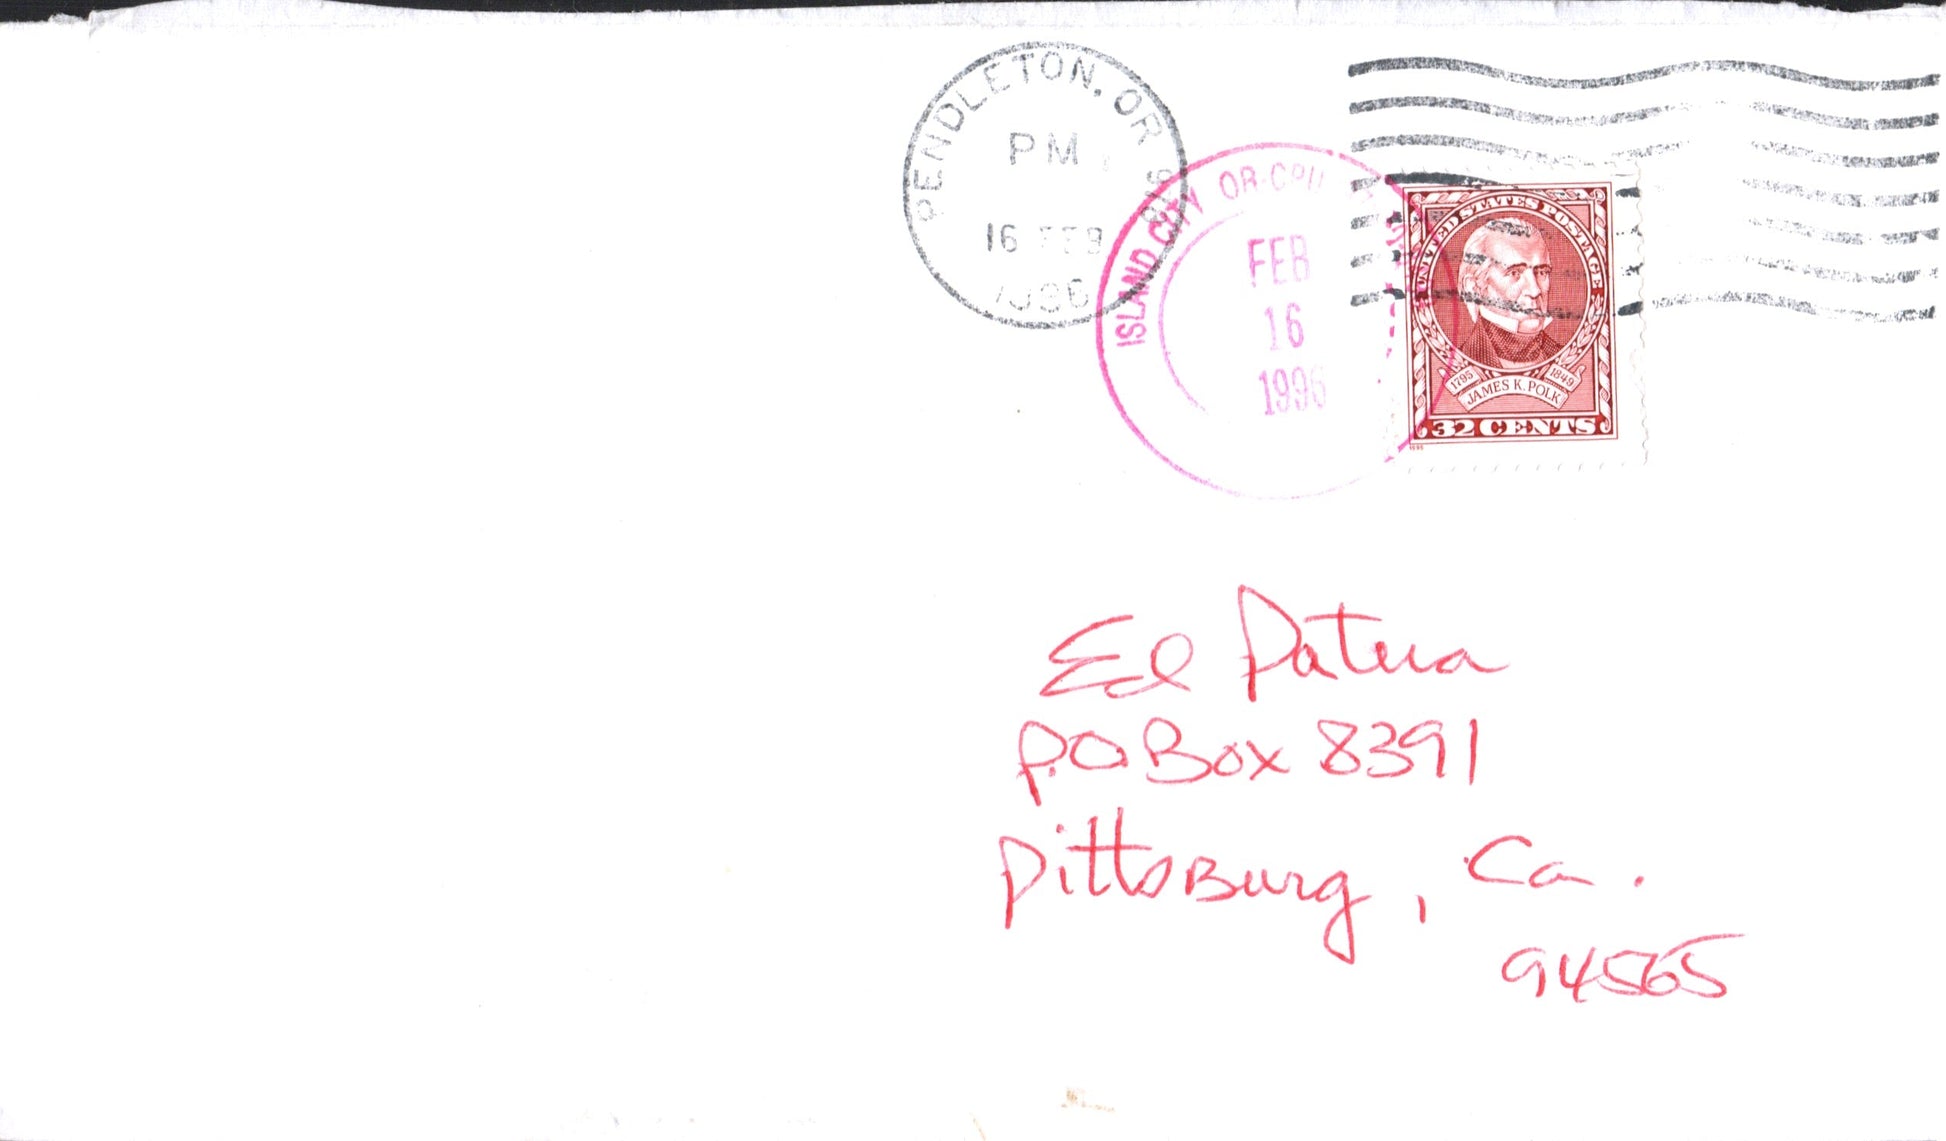 PENDLETON, OR 978
PM
16 FEB
1996
ISLAND CITY OR
FEB
16
1996
UNITED STATES POSTAGE
1795
1849
JAMES K. POLK
32 CENTS
1995
Ed Patera
P.O. Box 8391
PittsBurg, Ca.
94565